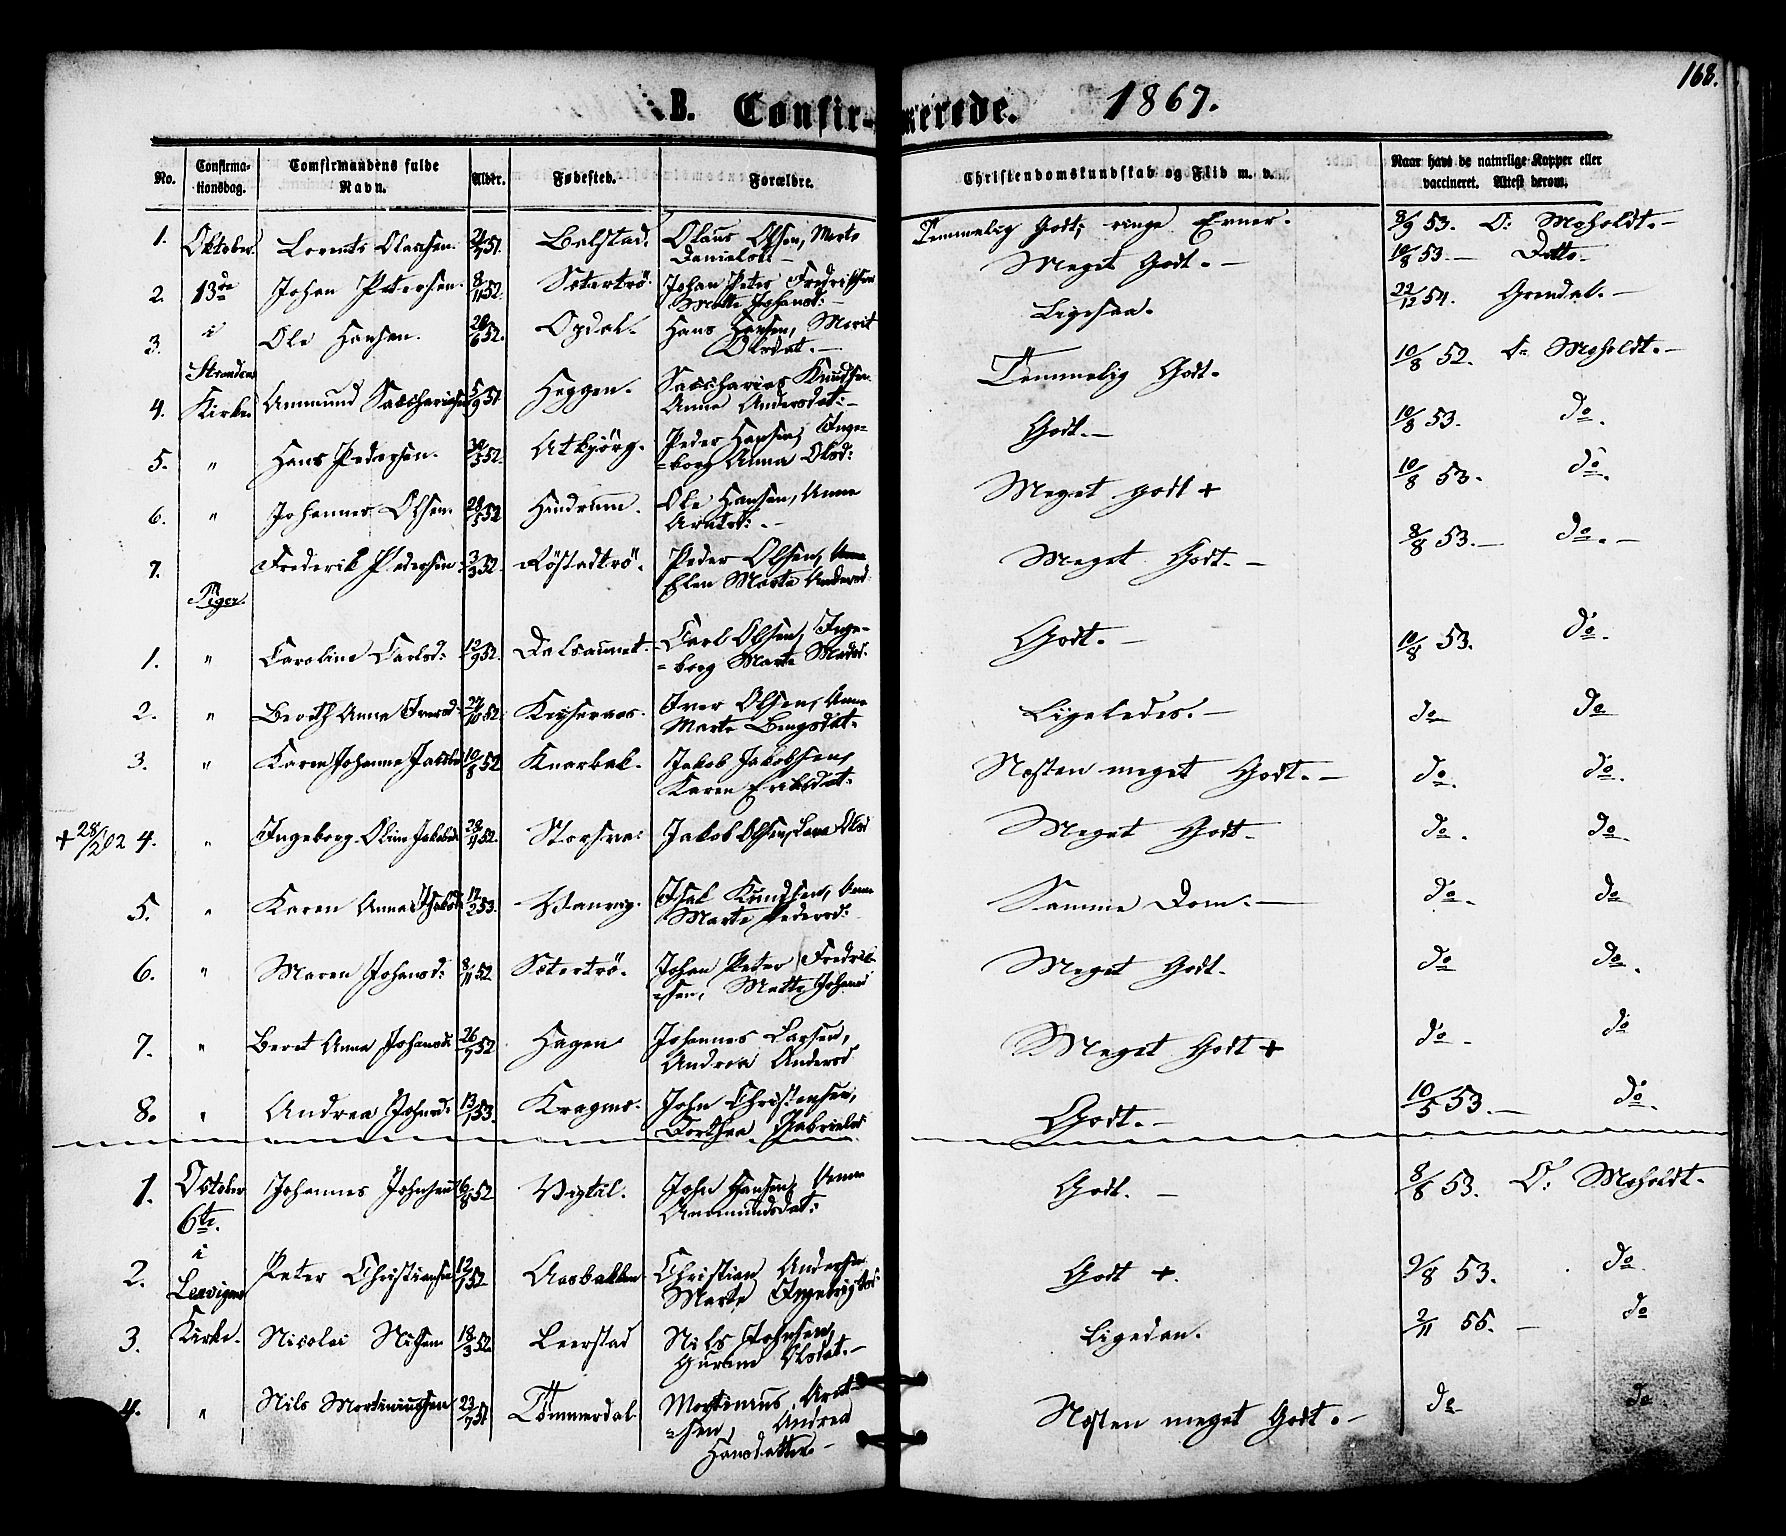 168.
B. Confirmerede. 1867.
No. Confirmationsdag. Comfirmandens fulde Navn. Alder. Fødested. Forældre. Christendomskundskab og Flid m. v. Naar havt de naturlige Kopper eller vaccineret. Attest derom.
1. Oktober Lorents Olaussen. 51. Balstad. Olaus Olsen, Marte Danielsd. Temmelig Godt; ringe Evner. 8/9 53. O: Moholdt.
2. 13de Johan Petersen. 8/11 52. Setertrö. Johan Peter Fredriksen Mette Johansd: Meget Godt. 10/8 53. Ditto.
3. i Ole Hansen. 28/6 52. Opdal. Hans Hansen, Marit Olsdat. Ligesaa. 22/12 54. Grendal.
Strandens
4. Kirke Ammund Sakkariasen 5/9 51 Heggen. Sakkarias Knudsen Anne Andersdat: Temmelig Godt. 10/8 52. O: Moholdt.
5. " Hans Pedersen. 30/5 52. Alkjörg. Peder Hansen, Inge-borg Anna Olsd: Godt. 10/8 53. do.
6. " Johannes Olsen. 28/5 52 Hindrum. Ole Hansen, Anne Arntsd: Meget godt + 10/8 53. do.
7. Frederik Pedersen. 3/3 52. Röstadtrö. Peder Olsen, Elen Marta Andersd: Meget Godt. 8/8 53. do.
Piger.
1. " Caroline Carlsd: 12/9 52. Dalsaunet. Carl Olsen, Inge-borg Marta Madsd. Godt. 10/8 53. do.
2. " Bereth Anna Iversd: 27/10 52. Iver Olsen, Anne Marte Bengsdat. Ligeledes. do do
3. " Karen Johanna Jakobsd 10/8 52 Knarbak. Jakob Jakobsen, Karen Eriksdat: Næsten meget Godt. do. do.
+ 28/2 02 4. " Ingeborg Oline Jakobsd 28/9 52. Storsve: Jakob Olsen, Lava Olsd Meget Godt. do. do.
5. " Karen Anna Isaksd 17/2 53. Wanvig. Isak Knudsen, Anne Marte Pedersd: Samme Dom. do. do
6. " Maren Johansd: 8/11 52 Setertrö. Johan Peter Fredrik-sen, Mette Johansd Meget Godt. do do.
7. " Beret Anna Johansd: 26/9 52 Hagen Johannes Larsen, Andrea Andersd Meget Godt + do. do
8. " Andrea Johnsd: 13/1 53. Kragnes. John Christensen, Dorthea Gabrielsd Godt. 10/5 53. do.
1. October Johannes Johnsen 6/8 52 Vigtil. John Hansen, Anne Ammundsdat: Godt. 8/8 53. O: Moholdt.
6te.
i
2. Lexvigens Peter Christiansen 12/1 52 Aasbakken Christian Andersen Marte Ingebrigtsd: Godt +. 9/8 53. do
3. Kirke. Nicolai Nilsen 18/3 52. Leerstad Nils Johnsen, Gurine Olsdat. Ligedan. 2/11 55. do
4. " Nils Martiniussen 23/7 51 Tömmerdal Martinus Arnt-sen, Andrea Hansdatter Næsten meget Godt. do do.